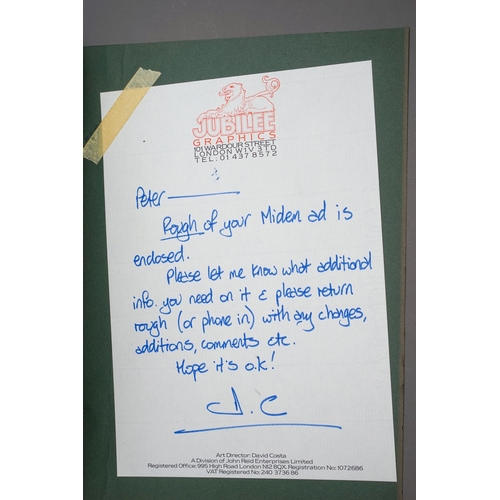 JUBILEE
GRAPHICS
101 WARDOUR STREET
LONDON W1V 3TD
TEL: 01 437 8572
Peter
Rough of your Midem ad is
enclosed.
Please let me know what additional
info. you need on it & please return
rough (or phone in) with any changes,
additions, comments etc.
Hope it's o.k!
D.C
Art Director: David Costa
A Division of John Reid Enterprises Limited
Registered Office: 995 High Road London N12 8QX. Registration No: 1072686
VAT Registered No: 240 3736 86